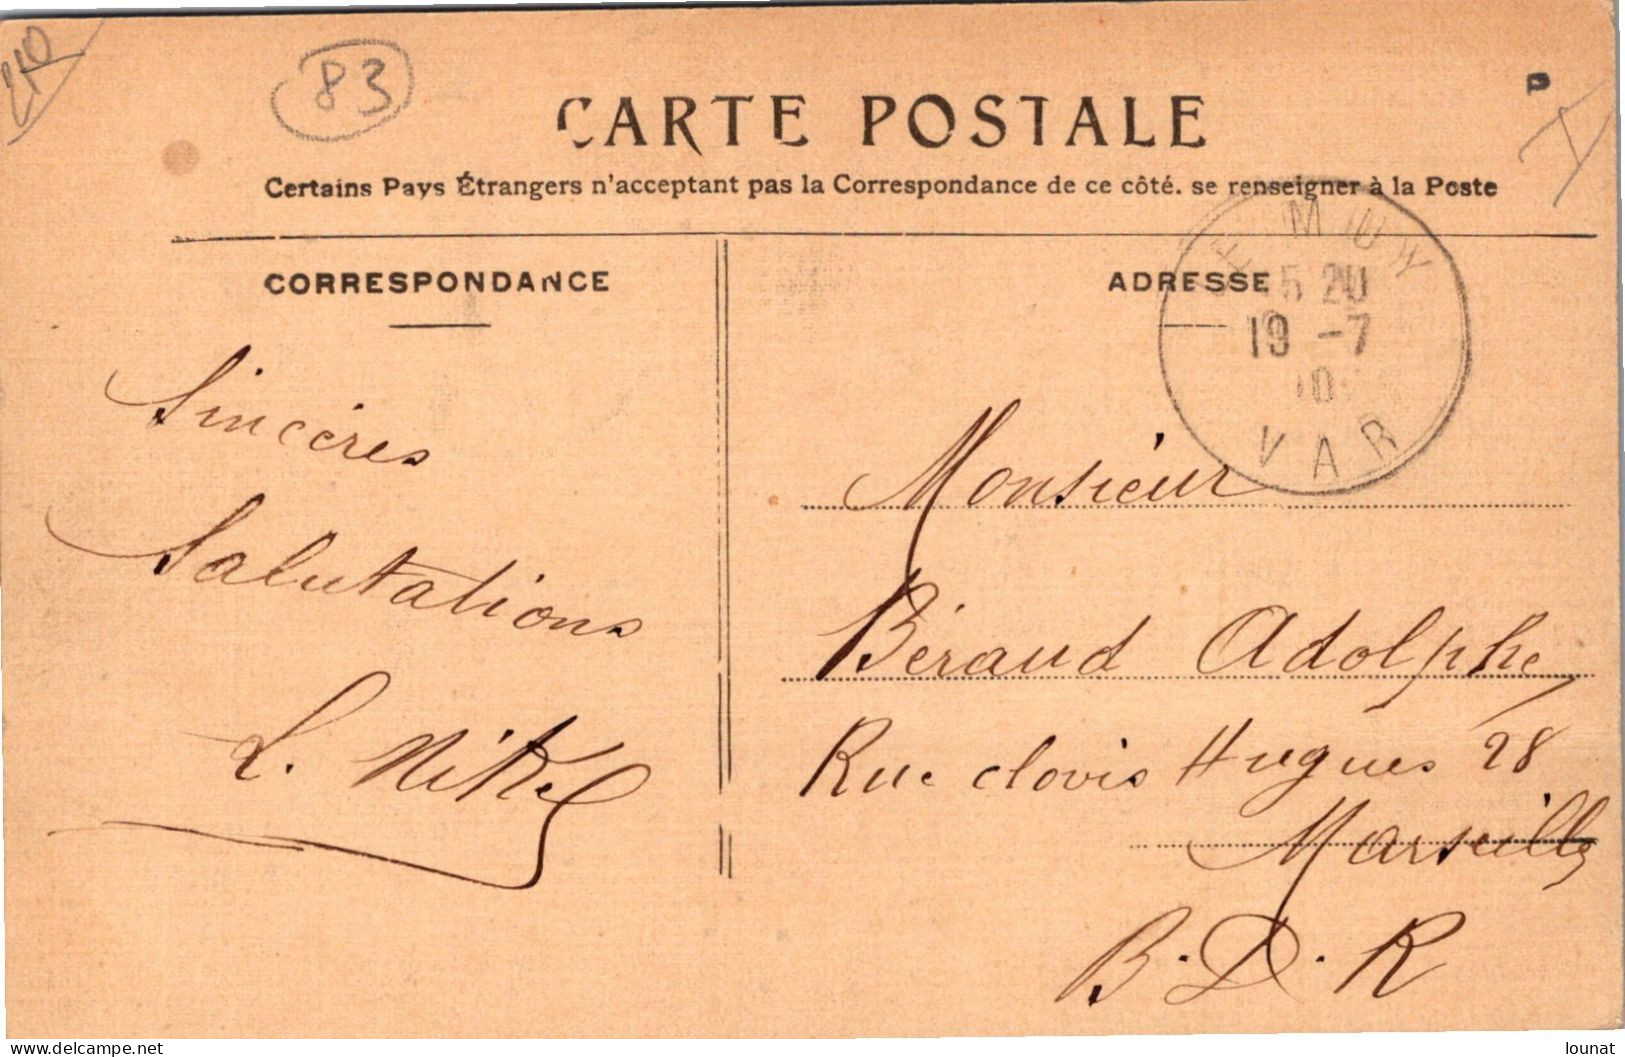 83
CARTE POSTALE
P
Certains Pays Étrangers n'acceptant pas la Correspondance de ce côté. se renseigner à la Poste
CORRESPONDANCE
ADRESSE
LE MUY
15 20
19 -7
10
VAR
Sincères
Salutations
L. Nikel
Monsieur
Béraud Adolphe
Rue clovis Hugues 28
Marseille
B. D. R
Delcampe.net
lounat